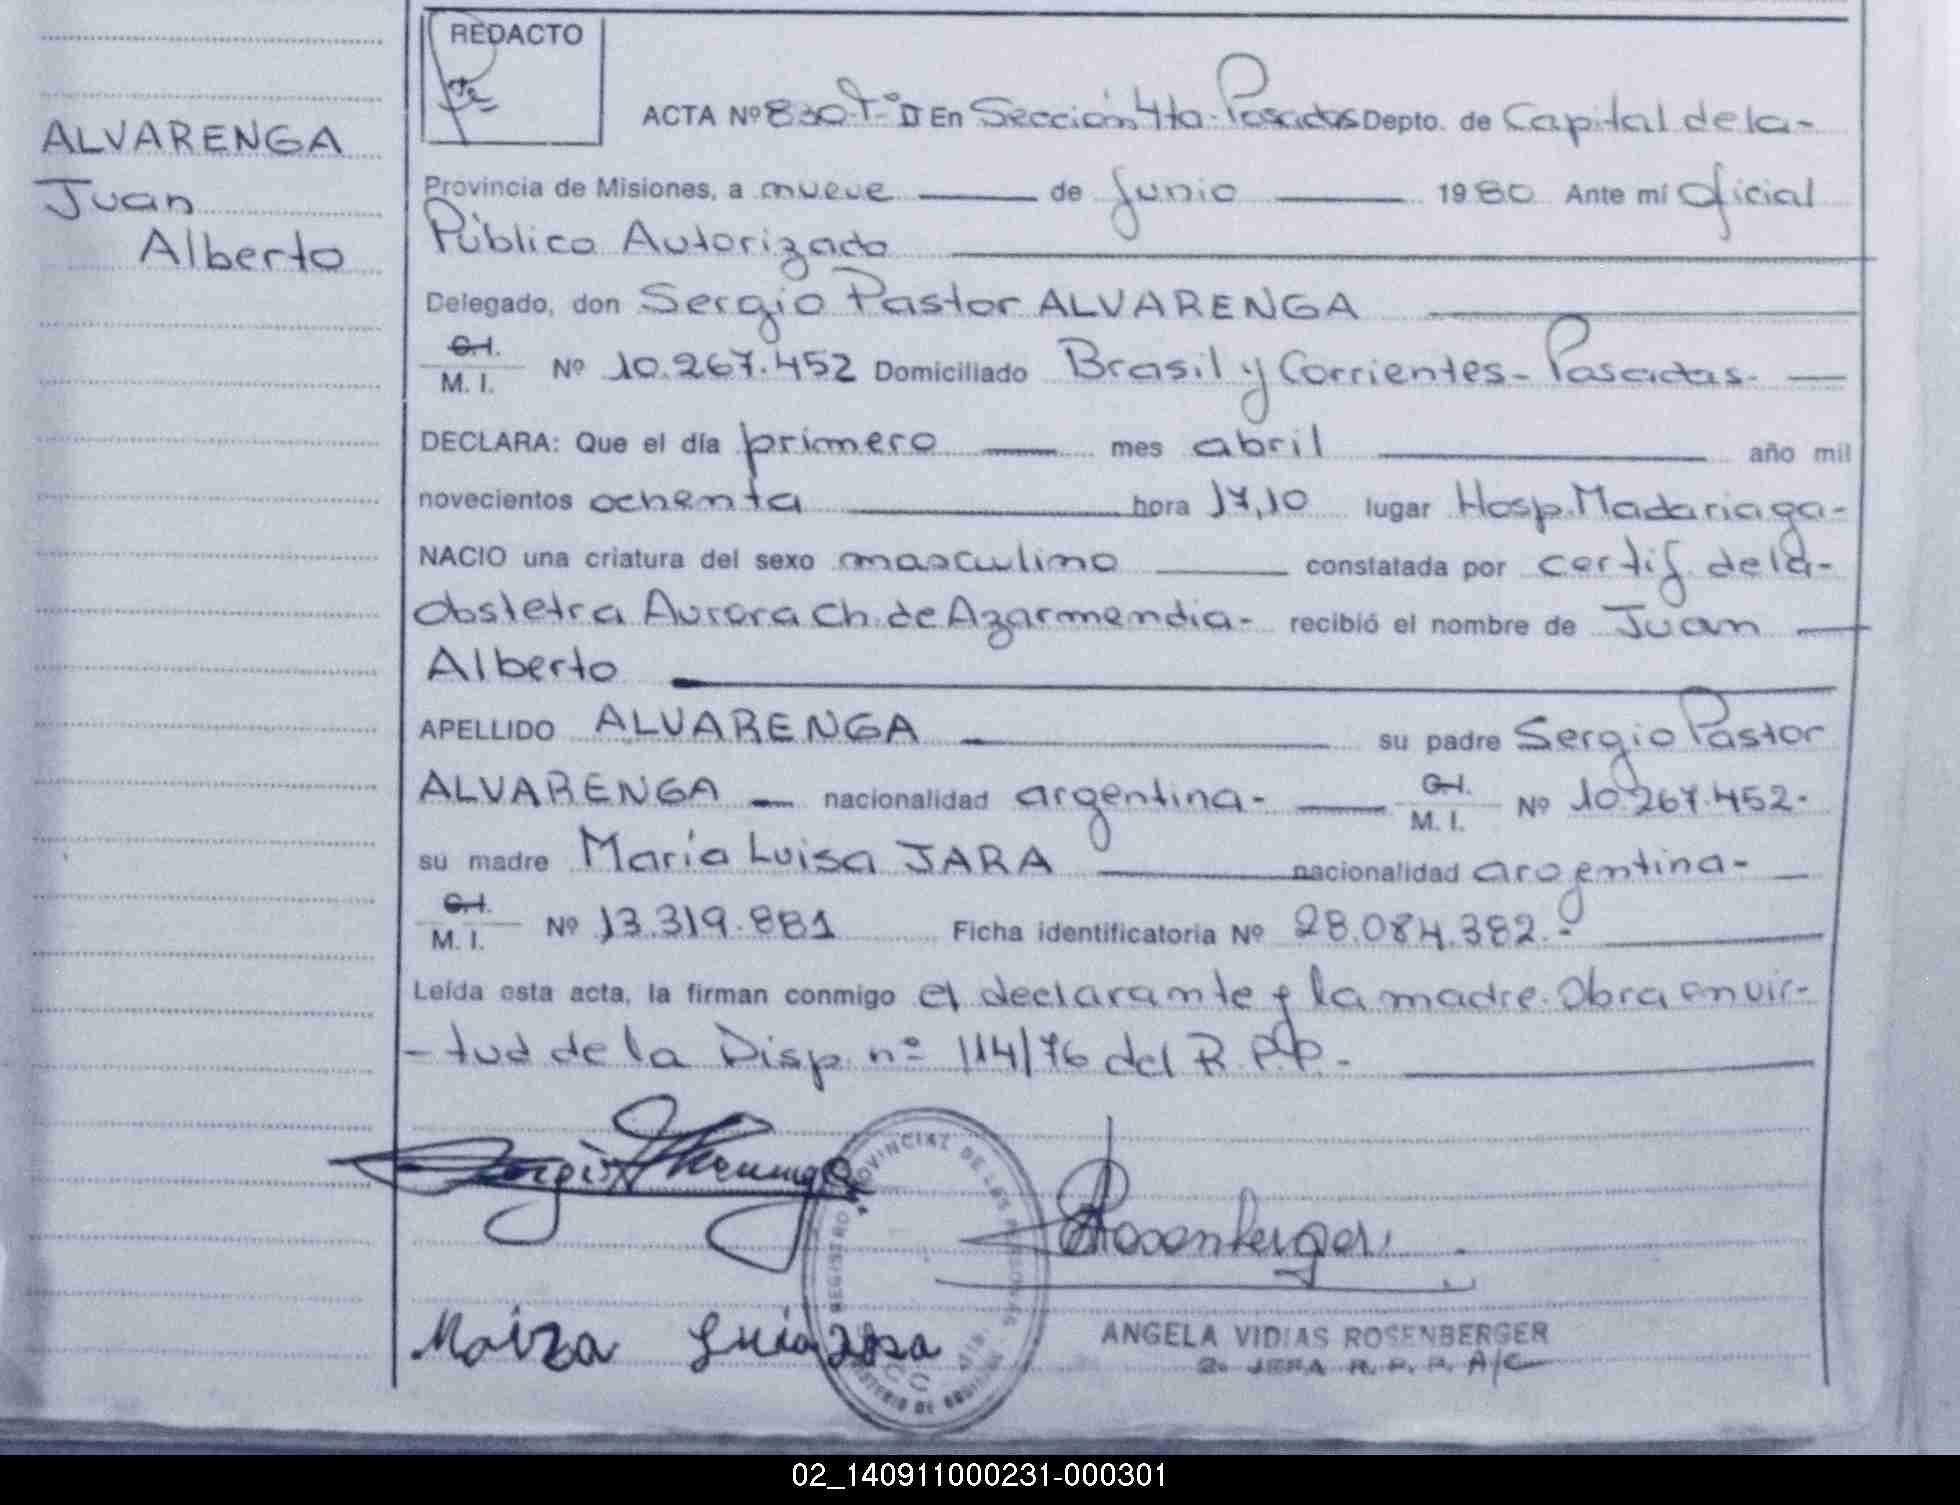 REDACTO
ALVARENGA
Juan
Alberto
ACTA Nº 830-Tº II En Sección 4ta-Posadas Depto. de Capital de la-
Provincia de Misiones, a nueve de Junio 1980 Ante mí Oficial
Público Autorizado
Delegado, don Sergio Pastor ALVARENGA
C.I.
M. I. Nº 10.267.452 Domiciliado Brasil y Corrientes-Posadas-
DECLARA: Que el día primero mes abril año mil
novecientos ochenta hora 17,10 lugar Hosp. Madariaga-
NACIO una criatura del sexo masculino constatada por certif. de la-
Obstetra Aurora Ch. de Azarmendia- recibió el nombre de Juan
Alberto
APELLIDO ALVARENGA su padre Sergio Pastor
ALVARENGA nacionalidad argentina- C.I. M. I. Nº 10.267.452-
su madre María Luisa JARA nacionalidad argentina-
C.I.
M. I. Nº 13.319.881 Ficha identificatoria Nº 28.084.382.-
Leída esta acta, la firman conmigo el declarante y la madre. Obra en vir-
-tud de la Disp. nº 114/76 del R.P.P.-
REGISTRO PROVINCIAL DE LAS PERSONAS
Rosenberger
ANGELA VIDIAS ROSENBERGER
2. JEFA R. P. P. A/C
02_140911000231-000301